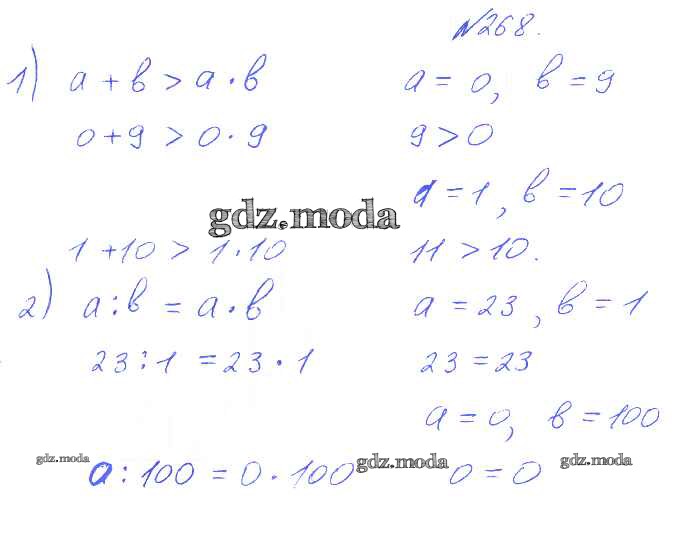 №268.
1) a + b > a · b a = 0, b = 9
0 + 9 > 0 · 9 9 > 0
a = 1, b = 10
gdz.moda
1 + 10 > 1 · 10 11 > 10.
2) a : b = a · b a = 23, b = 1
23 : 1 = 23 · 1 23 = 23
a = 0, b = 100
gdz.moda
0 : 100 = 0 · 100 gdz.moda 0 = 0 gdz.moda